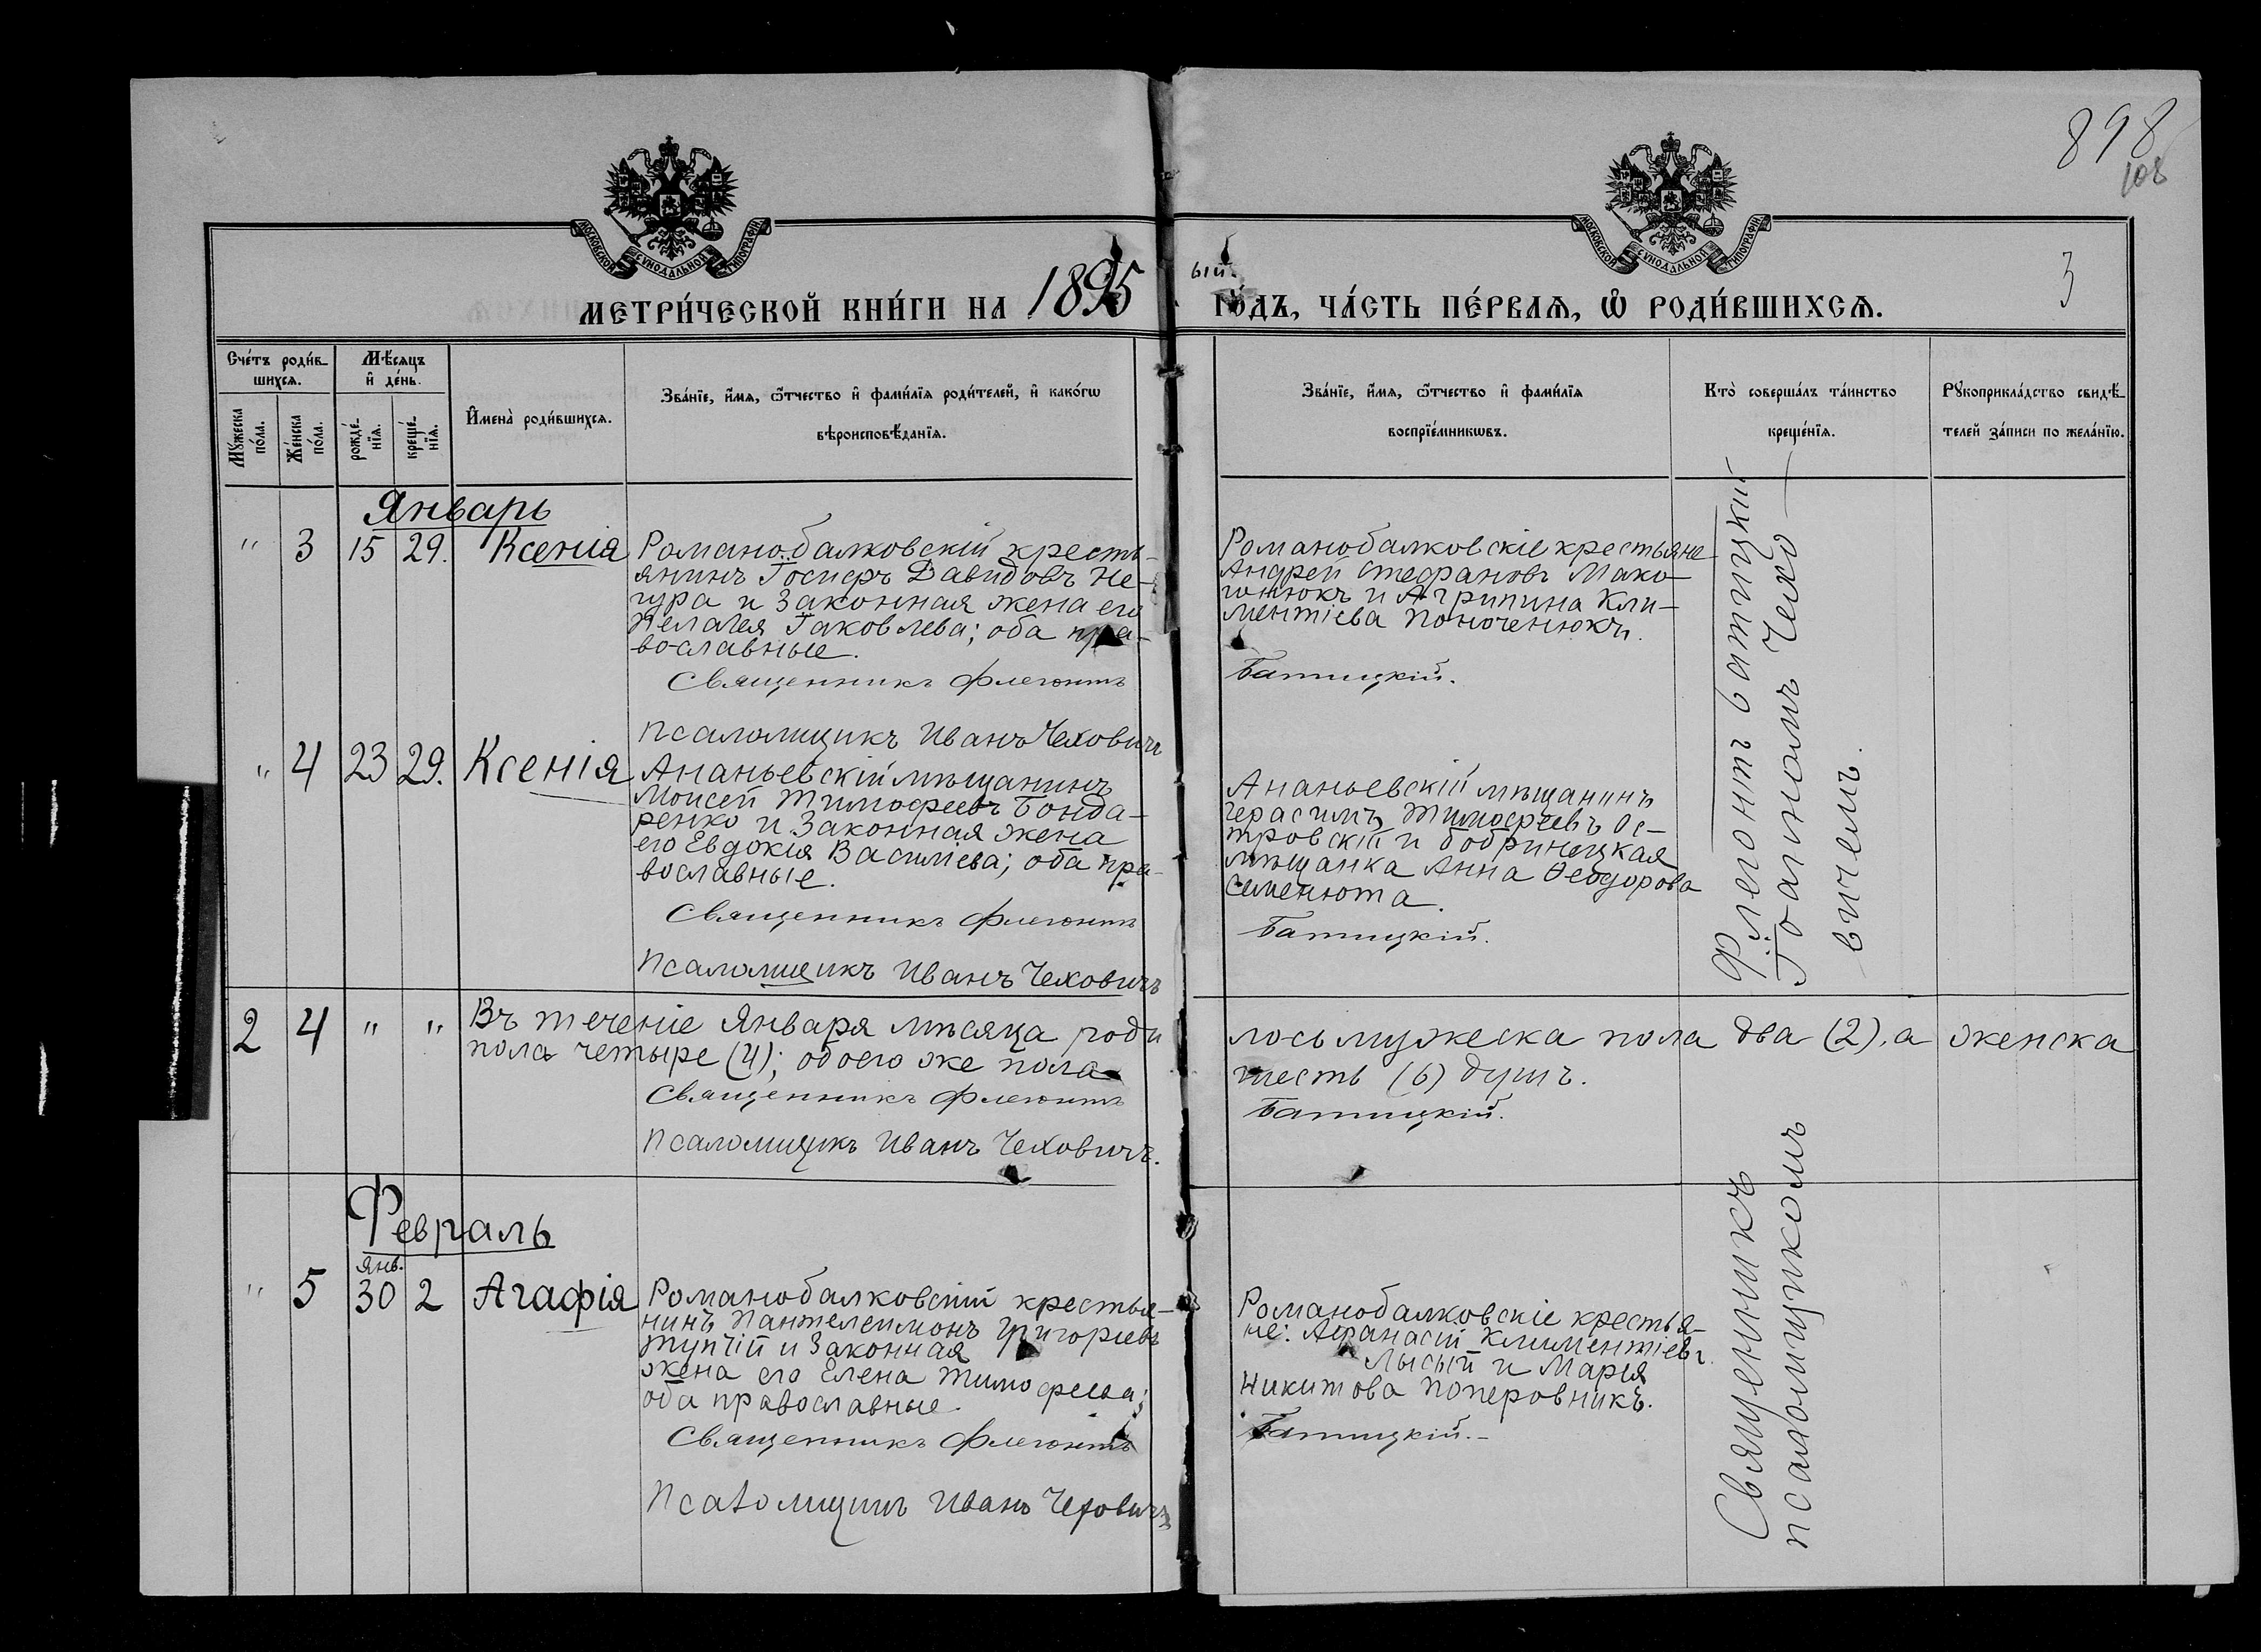 898
108
3
МОСКОВСКОЙ СѴНОДАЛЬНОЙ ТИПОГРАФІИ
МОСКОВСКОЙ СѴНОДАЛЬНОЙ ТИПОГРАФІИ
МЕТРИ́ЧЕСКОЙ КНИ́ГИ НА 1895
ый ГО́ДЪ, ЧА́СТЬ ПЕ́РВАѦ, Ѽ РОДИ́ВШИХСѦ.
Сче́тъ роди́в-
шихсѧ.
Мѣ́сѧцъ
и҆ де́нь.
Мꙋ́жеска
по́ла.
Же́нска
по́ла.
рожде́-
нїѧ.
креще́-
нїѧ.
И҆мена̀ роди́вшихсѧ.
Зва́нїе, и҆́мѧ, ѻ҆́тчество и҆ фами́лїѧ роди́телей, и҆ како́гѡ
вѣроисповѣ́данїѧ.
Зва́нїе, и҆́мѧ, ѻ҆́тчество и҆ фами́лїѧ
воспрїе́мникѡвъ.
Кто̀ соверша́лъ та́инство
креще́нїѧ.
Рꙋкоприкла́дство свидѣ́-
телей за́писи по жела́нїю.
Январь
" 3 15 29. Ксенія
Романобалковскій кресть-
янинъ Іосифъ Давидовъ Не-
гура и законная жена его
Пелагея Іаковлева; оба пра-
вославные.
Священникъ Флегонтъ
Псаломщикъ Иванъ Чеховичъ
Романобалковскіе крестьяне
Андрей Стефановъ Мако-
гонюкъ и Агрипина Кли-
ментіева Поноченюкъ.
Батицкій.
" 4 23 29. Ксенія
Ананьевскій мѣщанинъ
Моисей Тимофеевъ Бонда-
ренко и законная жена
его Евдокія Василіева; оба пра-
вославные.
Священникъ Флегонтъ
Псаломщикъ Иванъ Чеховичъ
Ананьевскій мѣщанинъ
Герасимъ Тимофеевъ Ос-
тровскій и бобринецкая
мѣщанка Анна Ѳеодорова
Семенюта.
Батицкій.
2 4 " " Въ теченіе Января мѣсяца роди
лось мужеска пола два (2), а женска
пола четыре (4); обоего же пола
шесть (6) душъ.
Священникъ Флегонтъ
Батицкій.
Псаломщикъ Иванъ Чеховичъ.
Февраль
Янв.
" 5 30 2 Агафія
Романобалковскій крестья-
нинъ Пантелеимонъ Григоріевъ
Тупчій и законная
жена его Елена Тимофеева;
оба православные.
Священникъ Флегонтъ
Псаломщикъ Иванъ Чеховичъ
Романобалковскіе крестья-
не: Афанасій Климентіевъ
Лысый и Марія
Никитова Поперовникъ.
Батицкій.
Священникъ Флегонтъ Батицкій
псаломщикомъ Іоанномъ Чехо-
вичемъ.